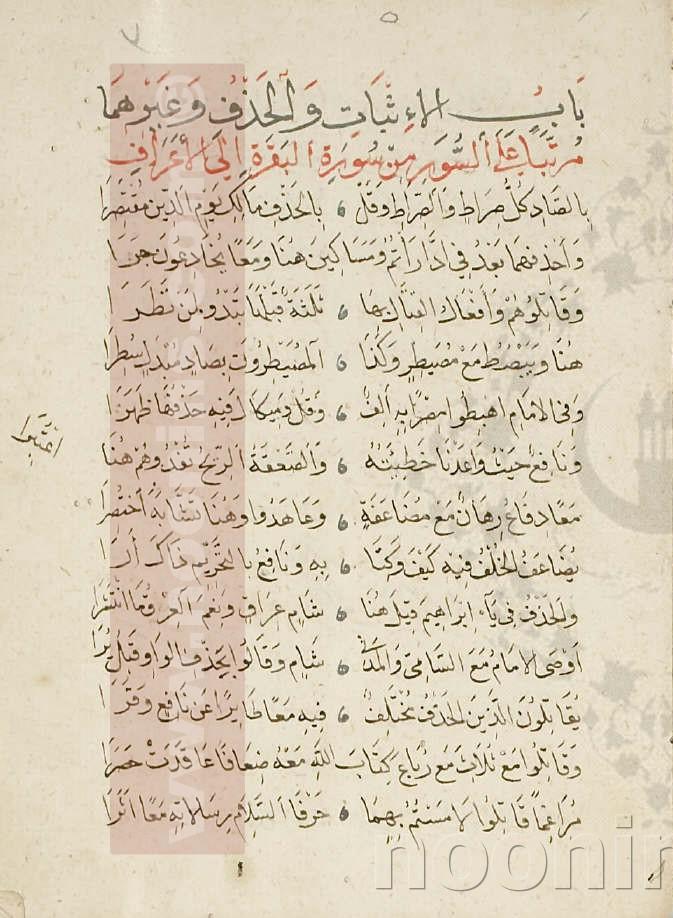 ٧
بَابُ الإِثْبَاتِ وَالْحَذْفِ وَغَيْرِهِمَا
مُرَتَّبًا عَلَى السُّوَرِ مِنْ سُورَةِ الْبَقَرَةِ إِلَى الْأَعْرَافِ
بِالصَّادِ كُلُّ صِرَاطٍ وَالصِّرَاطِ وَقُلْ بِالْحَذْفِ مَالِكِ يَوْمِ الدِّينِ مُقْتَصِرَا
وَاحْذِفْهُمَا بَعْدُ فِي ادَّارَأْتُمُ وَمَسَاكِينَ هُنَا وَمَعًا يُخَادِعُونَ جَرَا
وَقَاتِلُوهُمْ وَأَفْعَالَ الْقِتَالِ بِهَا ثَلٰثَةً قَبْلَهَا تَبْدُو لِمَنْ نَظَرَا
هُنَا وَيَبْصُطُ مَعْ مُصَيْطِرٍ وَكَذَا الْمُصَيْطِرُونَ بِصَادٍ مُبْدَلٍ سُطِرَا
وَفِي الْإِمَامِ اهْبِطُوا مِصْرًا بِهِ أَلِفٌ وَقُلْ وَمِيكَالَ فِيهِ حَذْفُهَا ظَهَرَا
وَنَافِعٌ حَيْثُ وَاعَدْنَا خَطِيئَتُهُ وَالصَّعْقَةُ الرِّيحُ تَفْدُوهُمْ هُنَا
مَعًا دِفَاعُ رِهَانٌ مَعْ مُضَاعَفَةٍ وَعَاهَدُوا وَهُنَا تَشَّابَهَ اخْتُصِرَا
يُضَاعَفُ الْخُلْفُ فِيهِ كَيْفَ وَكِتَابِهِ وَنَافِعٌ بِالتَّحْرِيمِ ذَاكَ أَرَا
وَالْحَذْفُ فِي يَاءِ إِبْرَاهِيمَ قِيلَ هُنَا شَامٍ عِرَاقٍ وَنِعْمَ الْعِرْقُ مَا انْتَشَرَا
أَوْصَى الْإِمَامُ مَعَ الشَّامِي وَالْمَدَنِي شَامٍ وَقَالُوا بِحَذْفِ الْوَاوِ قَبْلُ يُرَا
يُقَاتِلُونَ الَّذِينَ الْحَذْفُ مُخْتَلِفٌ فِيهِ مَعًا طَائِرًا عَنْ نَافِعٍ وَقَرَا
وَقَاتَلُوا مَعْ ثُلَاثَ مَعْ رُبَاعَ كِتَابَ اللهِ مَعْهُ ضِعَافًا عَاقَدَتْ حَصَرَا
مُرَاغَمًا قَاتَلُوا لَامَسْتُمُ بِهِمَا حَرْفَا السَّلَامِ رِسَالَاتِهِ مَعًا أُثِرَا
www.noonins.com
noonin